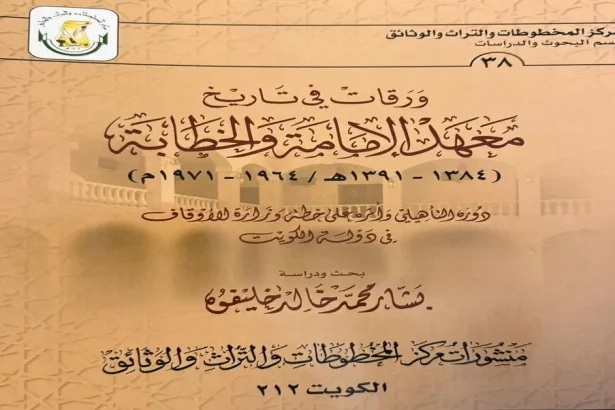 مركز المخطوطات والتراث والوثائق
قسم البحوث والدراسات
٣٨
ورقات في تاريخ
معهد الإمامة والخطابة
(١٣٨٤ - ١٣٩١هـ / ١٩٦٤ - ١٩٧١م)
دوره التأهيلي وأثره على خطة وزارة الأوقاف
في دولة الكويت
بحث ودراسة
بشار محمد خالد خليفوه
منشورات مركز المخطوطات والتراث والوثائق
الكويت ٢١٢